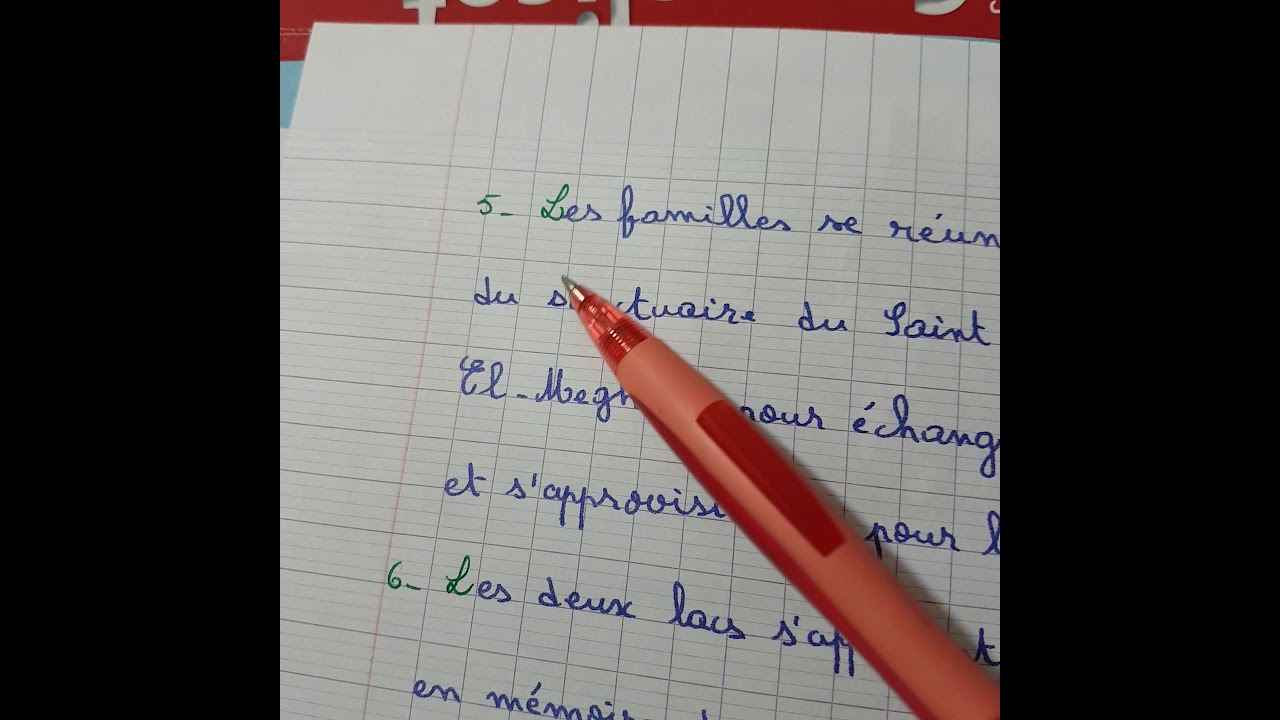 5- Les familles se réun
du s ctuaire du Saint
El-Megh pour échang
et s'approvisi pour l
6- Les deux lacs s'app t
en mémoir